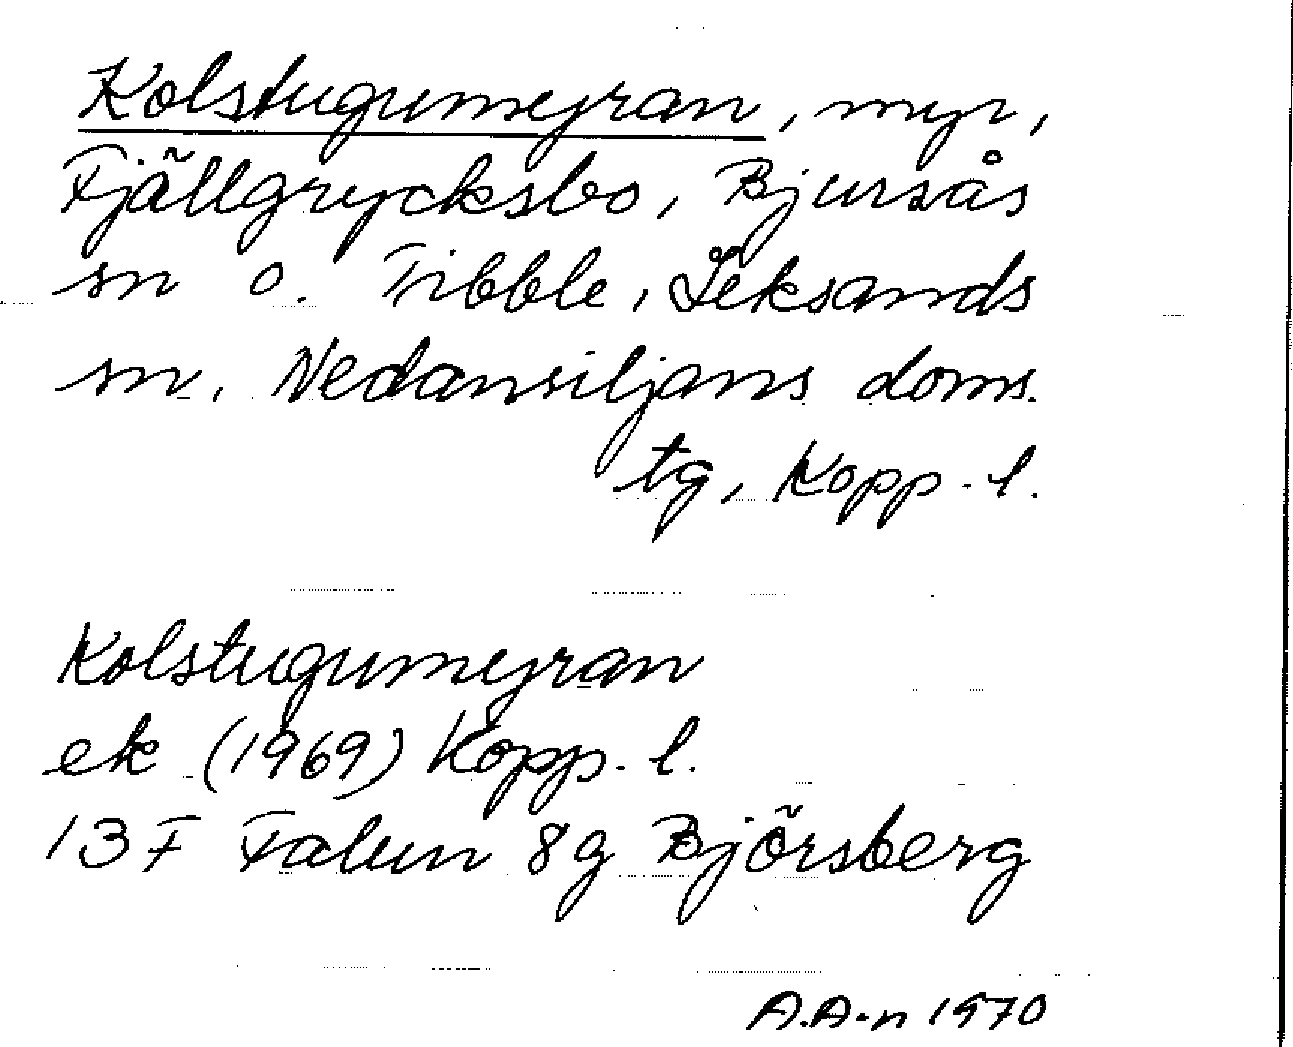 Kolstugumyran, myr,
Fjällgrycksbo, Bjursås
sn o. Tibble, Leksands
sn, Nedansiljans doms.
tg, Kopp. l.
Kolstugumyran
ek (1969) Kopp. l.
13F Falun 8g Björsberg
A.A-n 1970